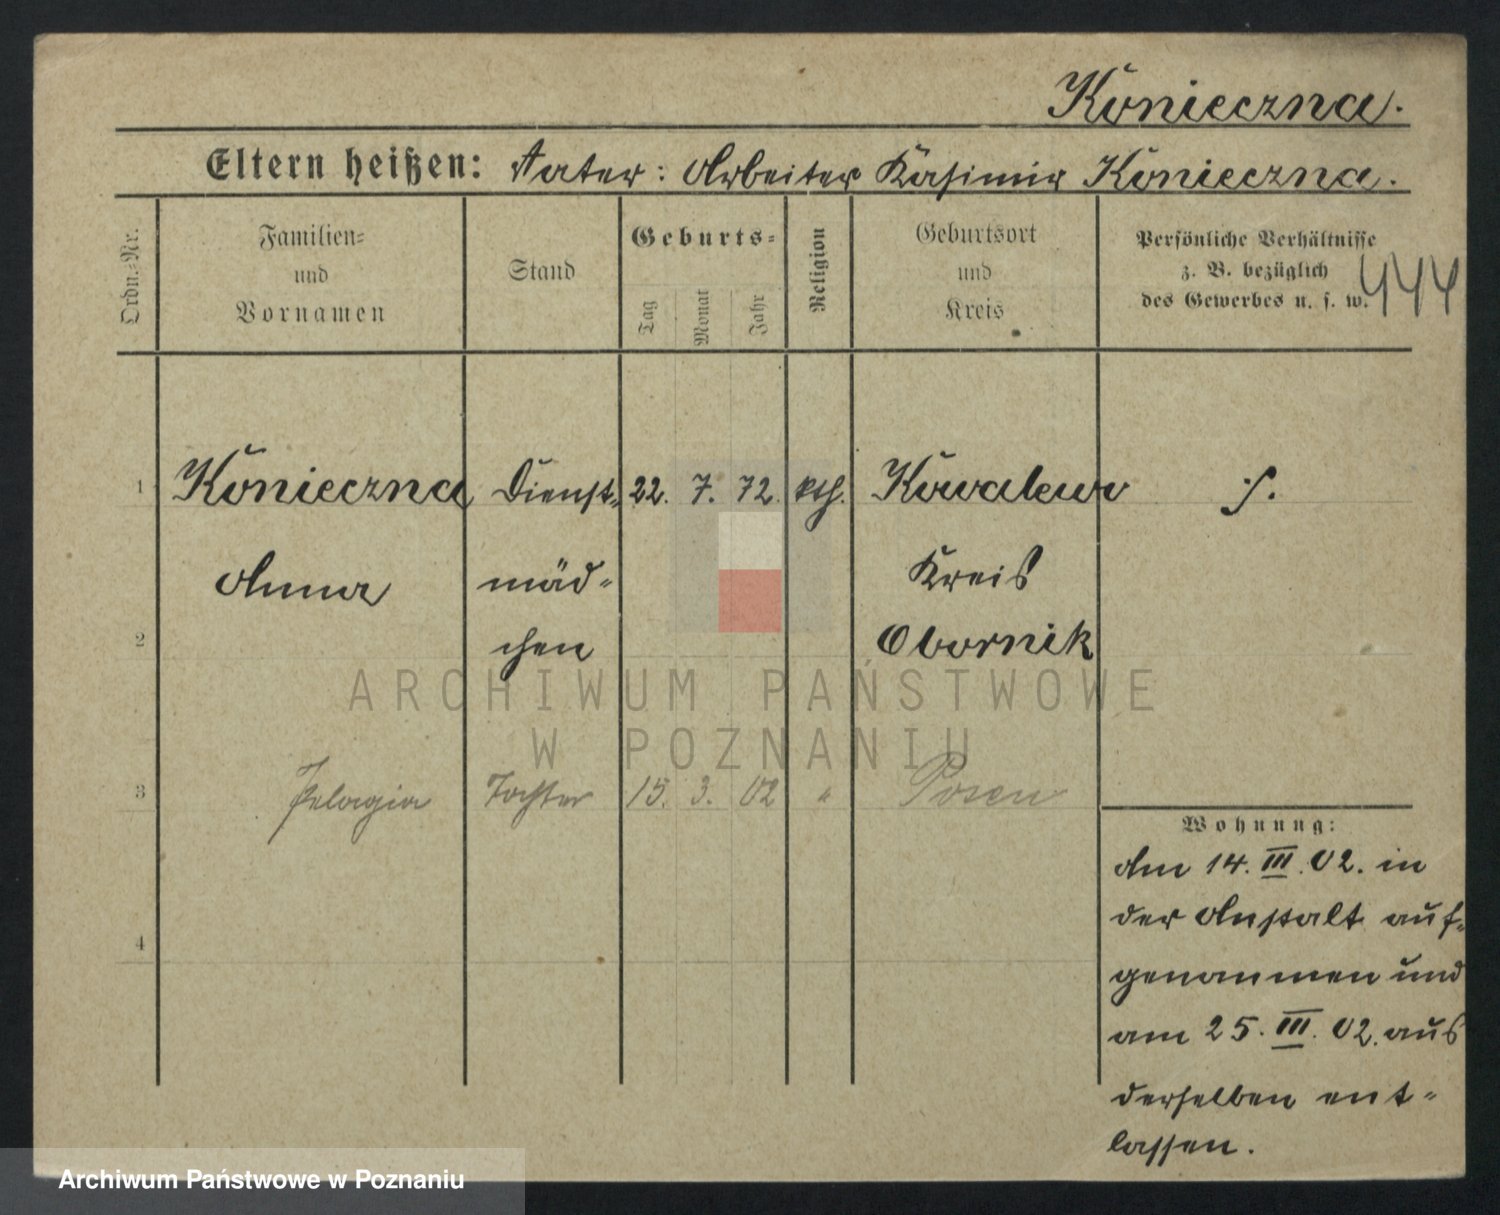 Konieczna.
Eltern heißen: Vater: Arbeiter Kasimir Konieczna.
Ordn.-Nr.
Familien-
und
Vornamen
Stand
Geburts-
Tag
Monat
Jahr
Religion
Geburtsort
und
Kreis
Persönliche Verhältnisse
z. B. bezüglich
des Gewerbes u. s. w.
444
1 Konieczna Dienst- 22. 7. 72. kth. Kowalewo ./.
Anna mäd- Kreis
2 chen Obornik
ARCHIWUM PAŃSTWOWE
W POZNANIU
3 Pelagia Tochter 15. 3. 02 " Posen
4
Wohnung:
Am 14. III. 02. in
der Anstalt auf-
genommen und
am 25. III. 02. aus
derselben ent-
lassen.
Archiwum Państwowe w Poznaniu